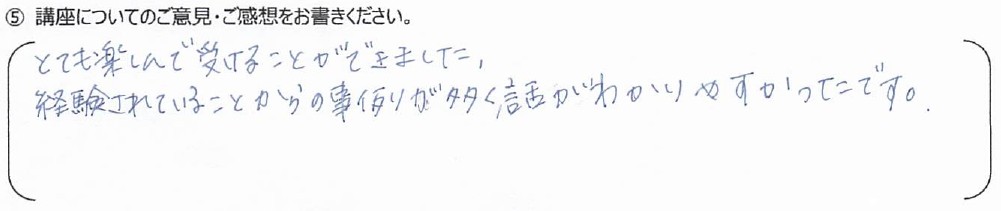 ⑤ 講座についてのご意見・ご感想をお書きください。
とても楽しんで受けることができました。
経験されていることからの事例が多く話がわかりやすかったです。